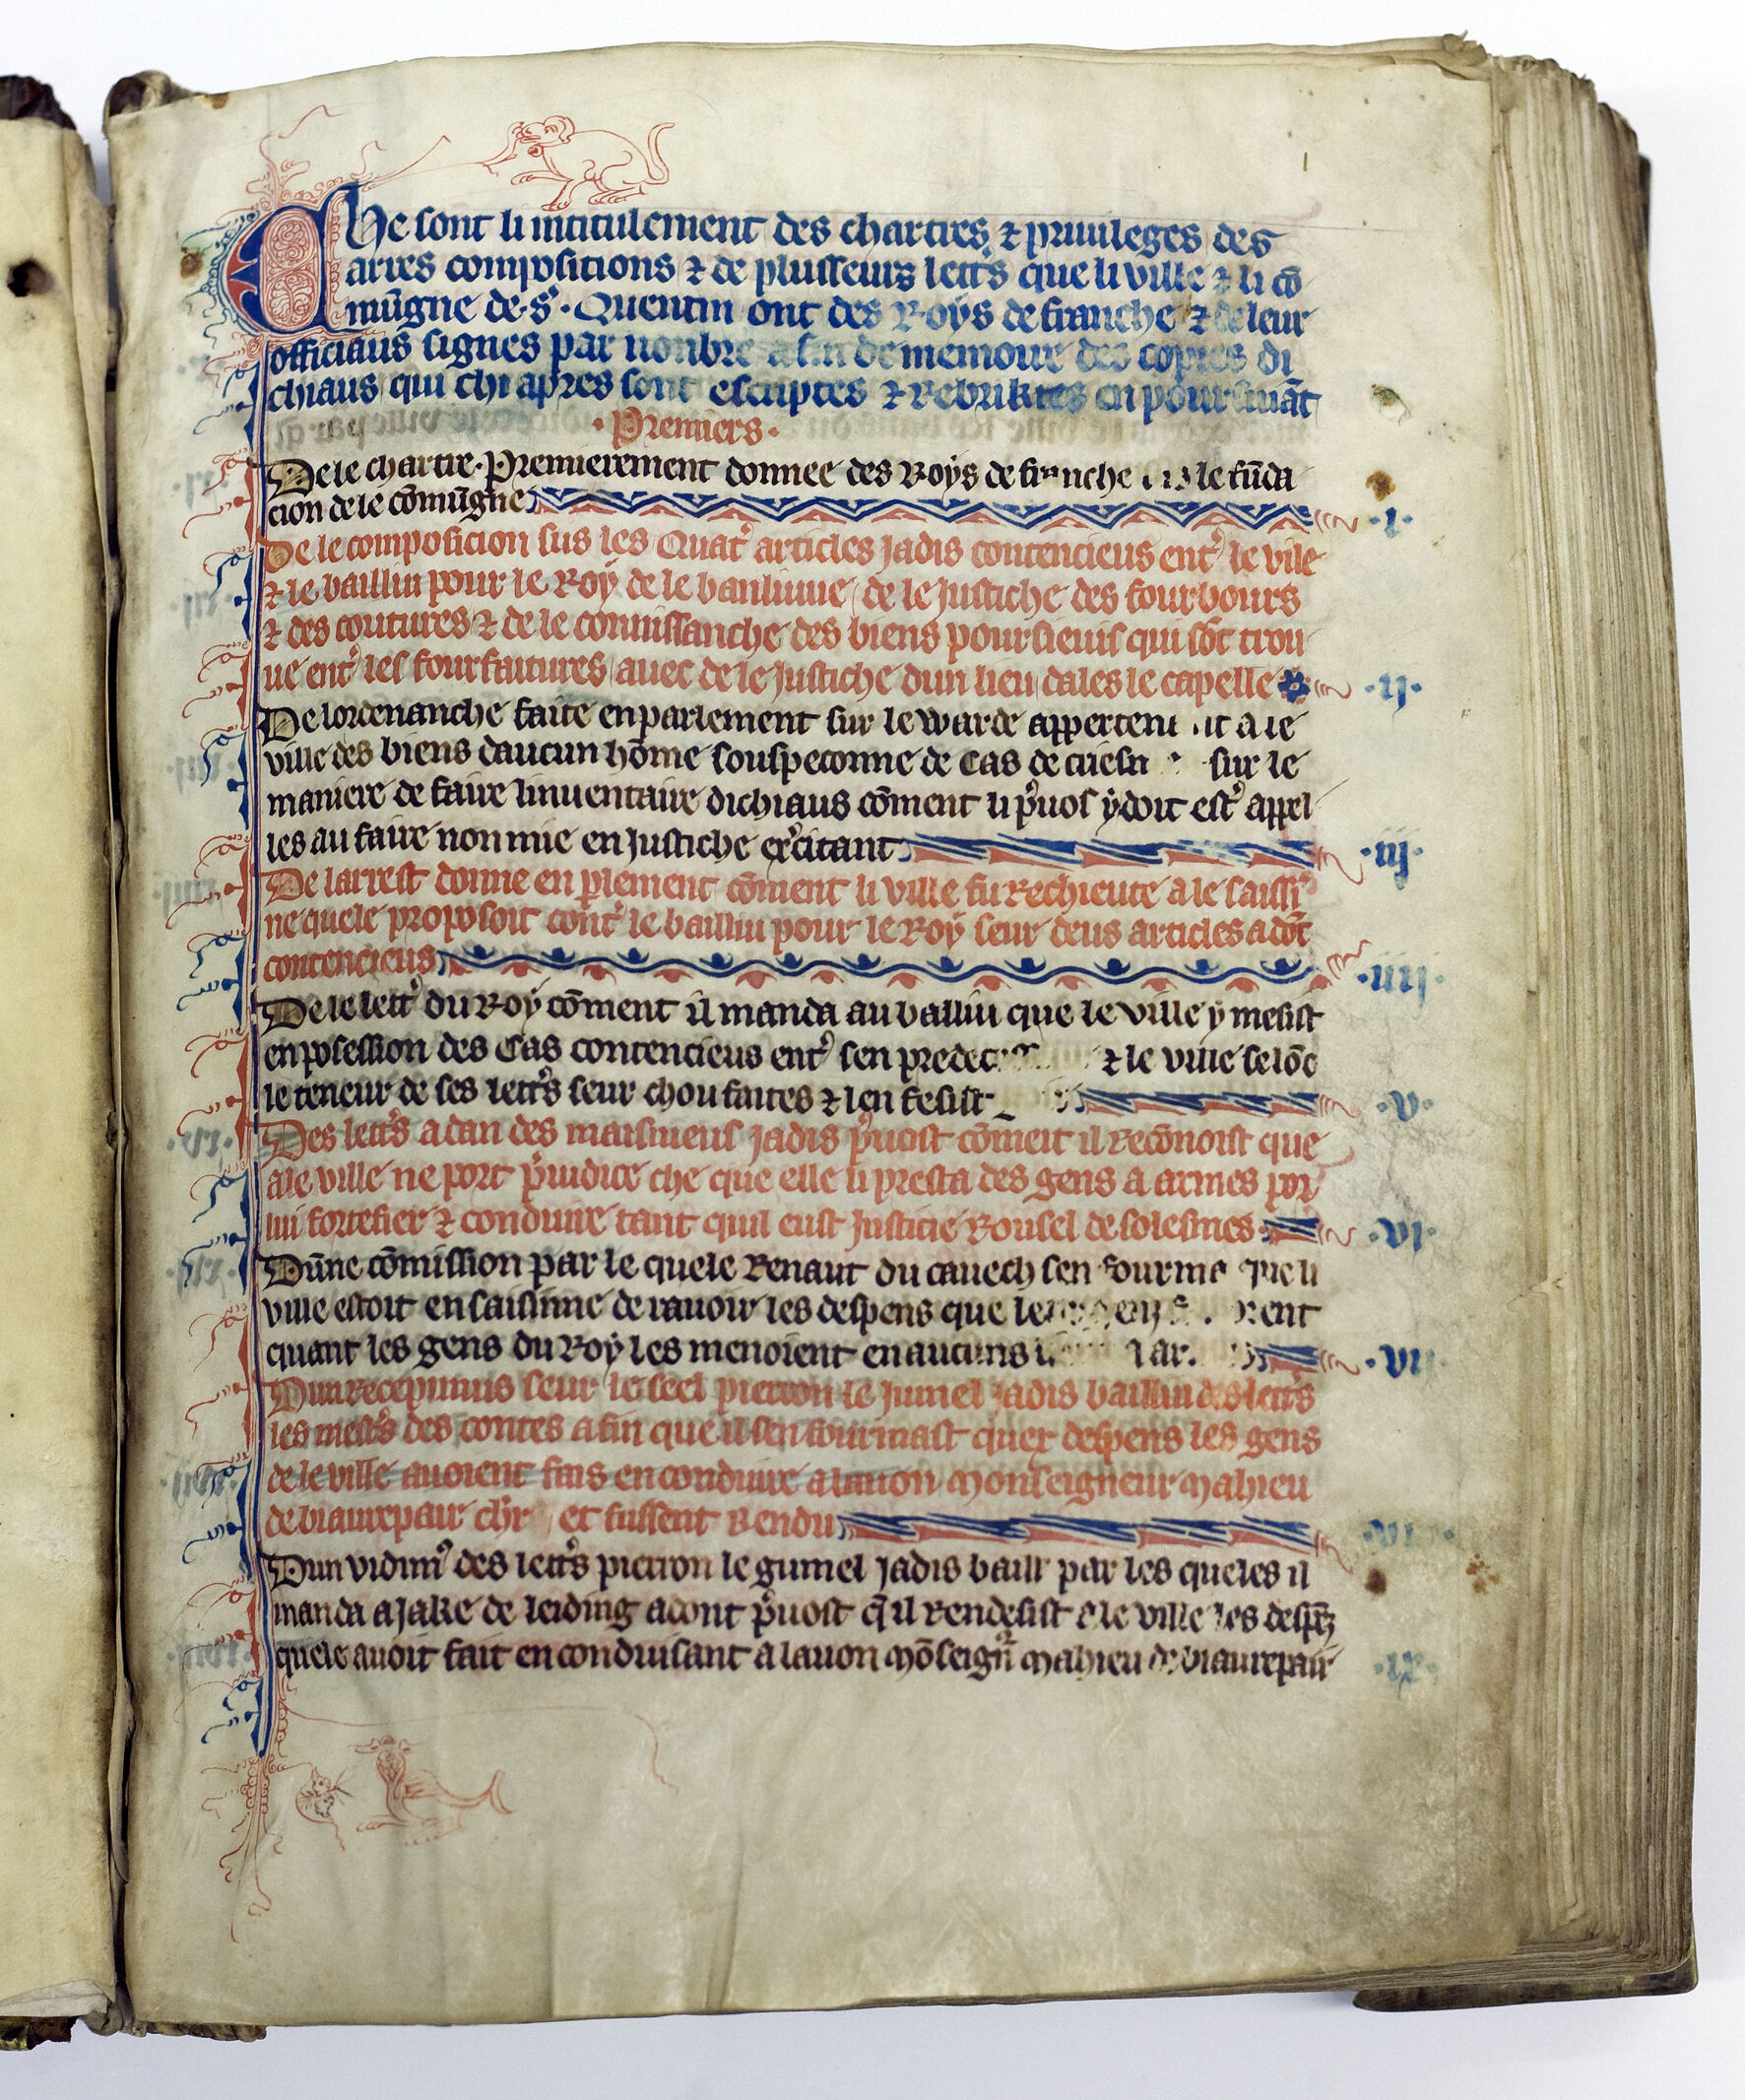 Che sont li intitulement des chartres ⁊ priuileges des
arres compositions ⁊ de plusseurs lettˢs que li ville ⁊ li cō
mūgne de .Sᵗ. Quentin ont des Roys de franche ⁊ de leur
officiaus signes par nonbre a fin de memoire des copies di
chiaus qui chi apres sont escriptes ⁊ Rebrikees en poursiuāt
.Premiers.
De le chartre. Premierement donnee des Roys de franche le fūda
cion de le cōmūgne .i.
De le composicion sus les Quatˀ articles Jadis contencieus entˀ le vile
⁊ le bailliu pour le Roy de le banliuue / de le Justiche des fourbours
⁊ des coutures ⁊ de le connissanche des biens poursieuis qui sōt trou
ue entˀ les fourfaitures / auec de le Justiche dun lieu dales le capelle .ij.
De lordenanche faite en parlement sur le warde a le
ville des biens daucun hōme souspeconne de Cas de sur le
maniere de faire linuentaire dichiaus cōment li pˀuos y doit estˀ appel
les au faire non mie en Justiche exˀcitant .iij.
De larrest donne en plement cōment li ville fu Rechieute a le saisi
ne quele proposoit contˀ le bailliu pour le Roy seur deus articles adōt
contencieus .iiij.
De le lettˀ du Roy cōment il manda au balliu que le ville y mesist
en posession des Cas contencieus entˀ sen ⁊ le ville selōc
le teneur de ses lettˀs seur chou faites ⁊ len fesist .v.
Des lettˀs adan des maisnieus Jadis pˀuost cōment il Recōnoist que
a le ville ne port pˀiudice che que elle li presta des gens a armes por
lui fortefier ⁊ conduire tant quil eust Justicie Rousel de solesmes .vi.
Dūne cōmission par le quele Renaut du cauech sen fourme que li
ville estoit en saisinne de rauoir les despens que
quant les gens du Roy les menoient en aucuns .vii.
Dun Recepimus seur le seel pierron le Jumel Jadis bailliu des lettˀs
les mestˀs des contes a fin que il sen fourmast quex despens les gens
de le ville auoient fais en conduire a lauon Monseigneur Mahieu
de biaurepair chˀr et fussent Rendu .viii.
Dun vidimˀ des lettˀs pierron le gumel Jadis baill par les queles il
manda a Jake de leiding adont pˀuost q̄ il rendesist a le ville les despēz
quele auoit fait en conduisant a lauon Mōseignˀ Mahieu de biaurepair .ix.